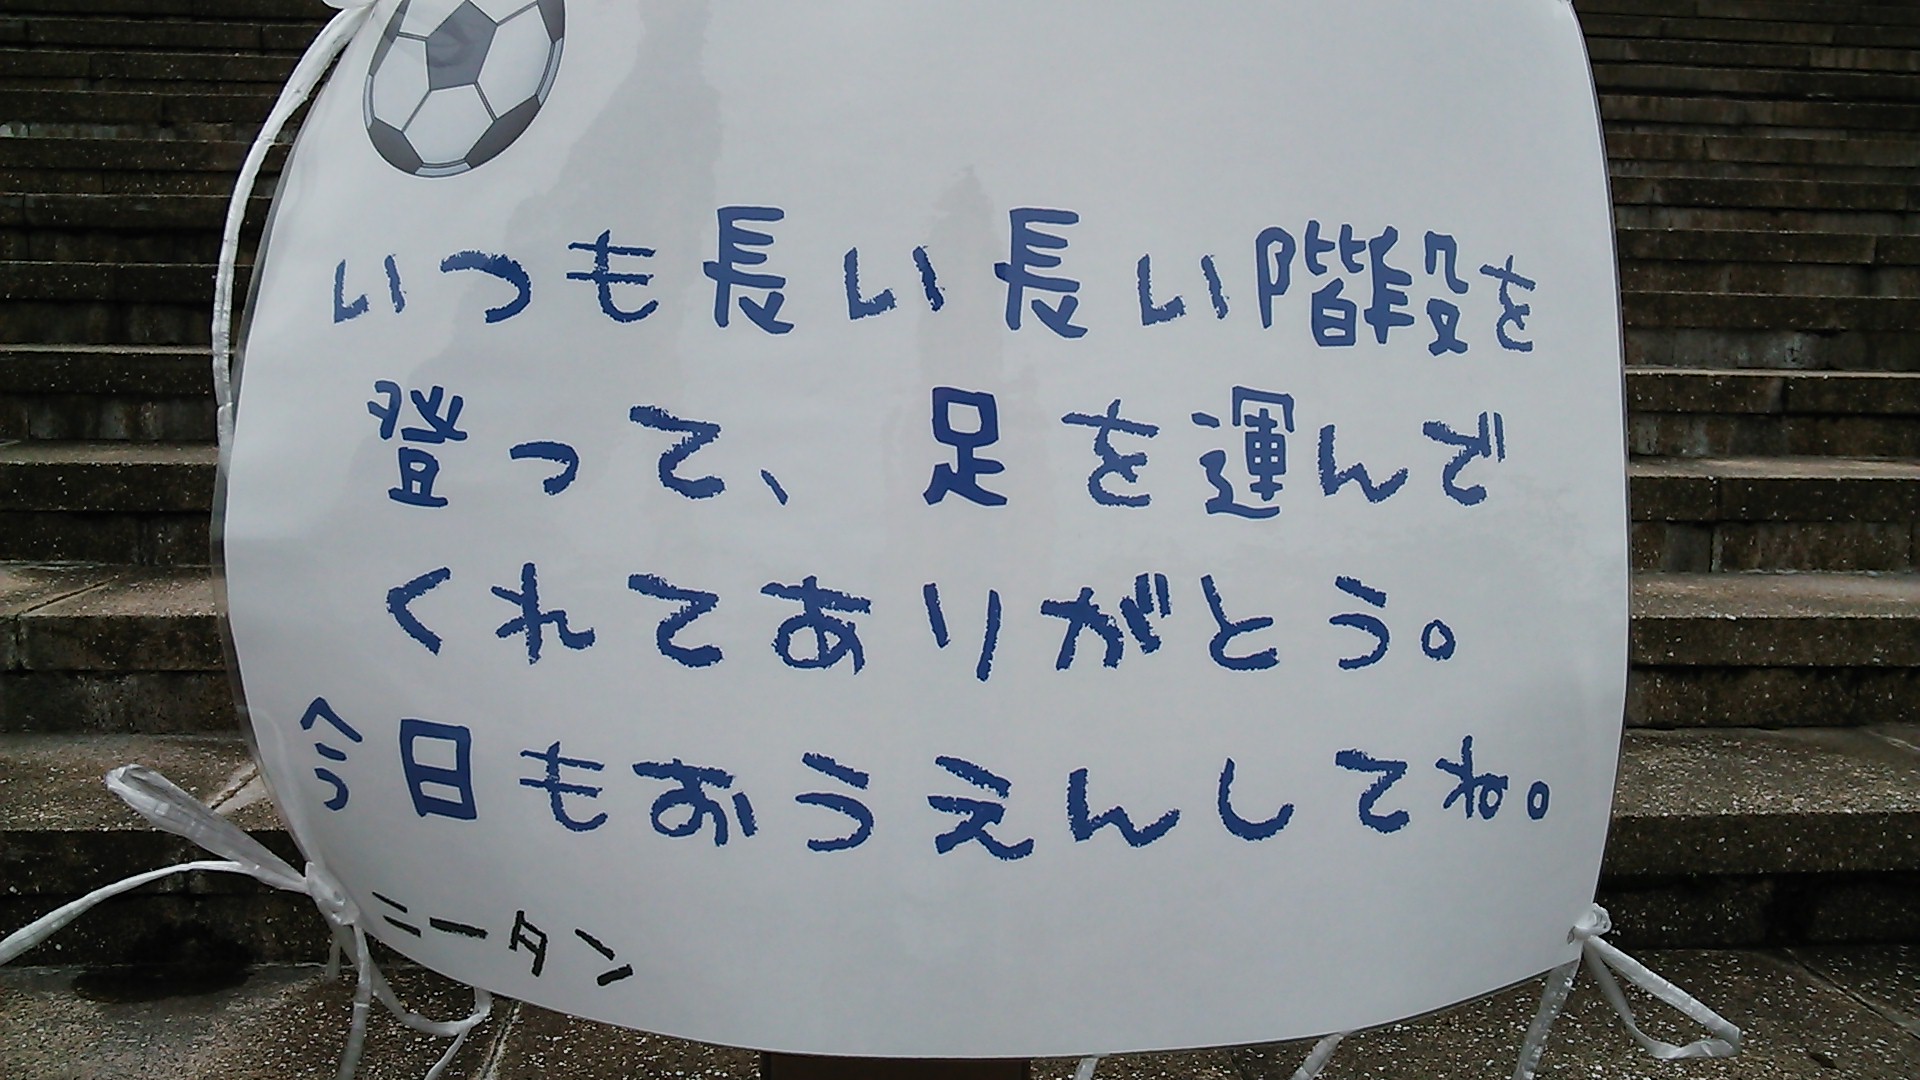 いつも長い長い階段を
登って、足を運んで
くれてありがとう。
今日もおうえんしてね。
ニータン